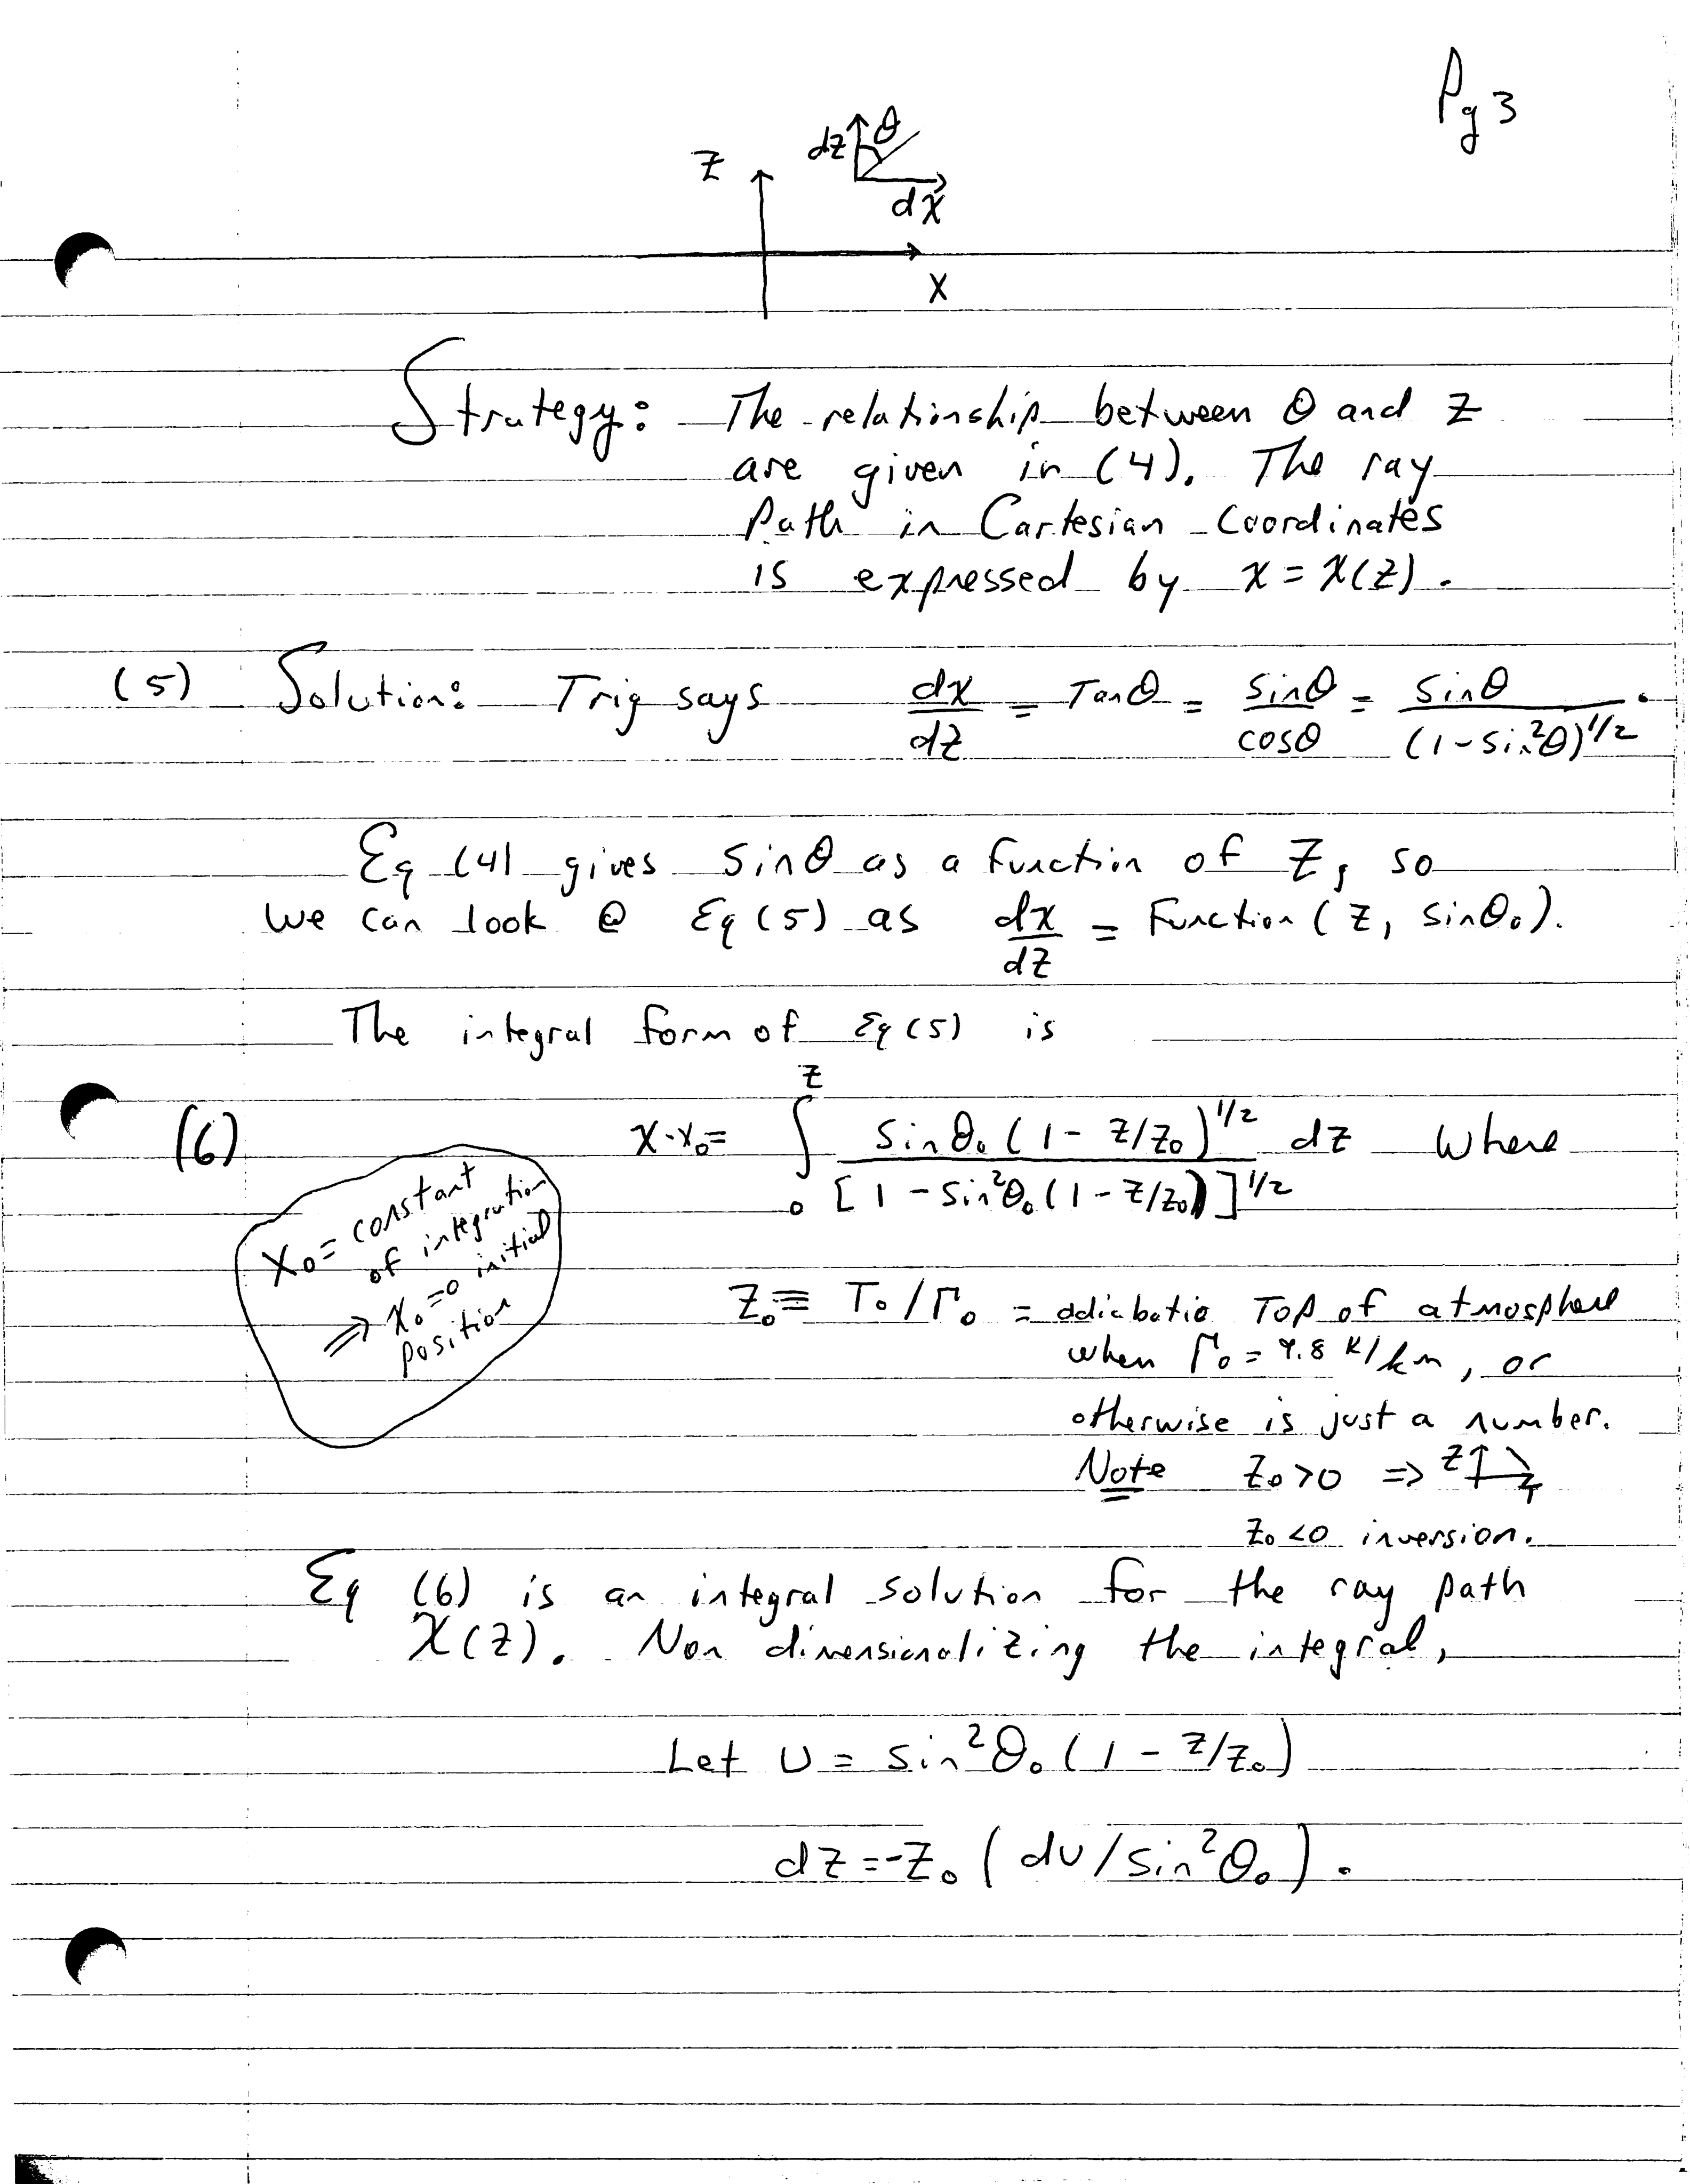 Pg 3
dz θ
dx
z
x
Strategy: The relatinship between θ and z
are given in (4). The ray
Path in Cartesian Coordinates
is expressed by x = x(z).
(5) Solution: Trig says dx/dz = Tanθ = sinθ/cosθ = sinθ/(1-sin²θ)^1/2.
Eq (4) gives sinθ as a function of z, so
we can look @ Eq (5) as dx/dz = Function (z, sinθ₀).
The integral form of Eq (5) is
(6) x-x₀ = ∫₀^z sinθ₀ (1 - z/z₀)^1/2 / [1 - sin²θ₀ (1 - z/z₀)]^1/2 dz where
x₀ = constant
of integration
⇒ x₀=0 initial
position
z₀ ≡ T₀/Γ₀ = adiabatic Top of atmosphere
when Γ₀ = 9.8 K/km, or
otherwise is just a number.
Note z₀ > 0 ⇒ z T
z₀ < 0 inversion.
Eq (6) is an integral solution for the ray path
x(z). Non dimensionalizing the integral,
Let U = sin²θ₀ (1 - z/z₀)
dz = -z₀ (dU/sin²θ₀).